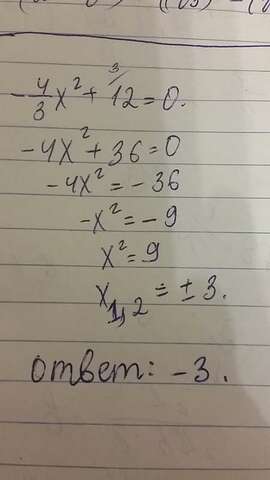 -4/3 x² + 12 = 0. 3/
-4x² + 36 = 0
-4x² = -36
-x² = -9
x² = 9
x₁,₂ = ± 3.
ответ: -3.